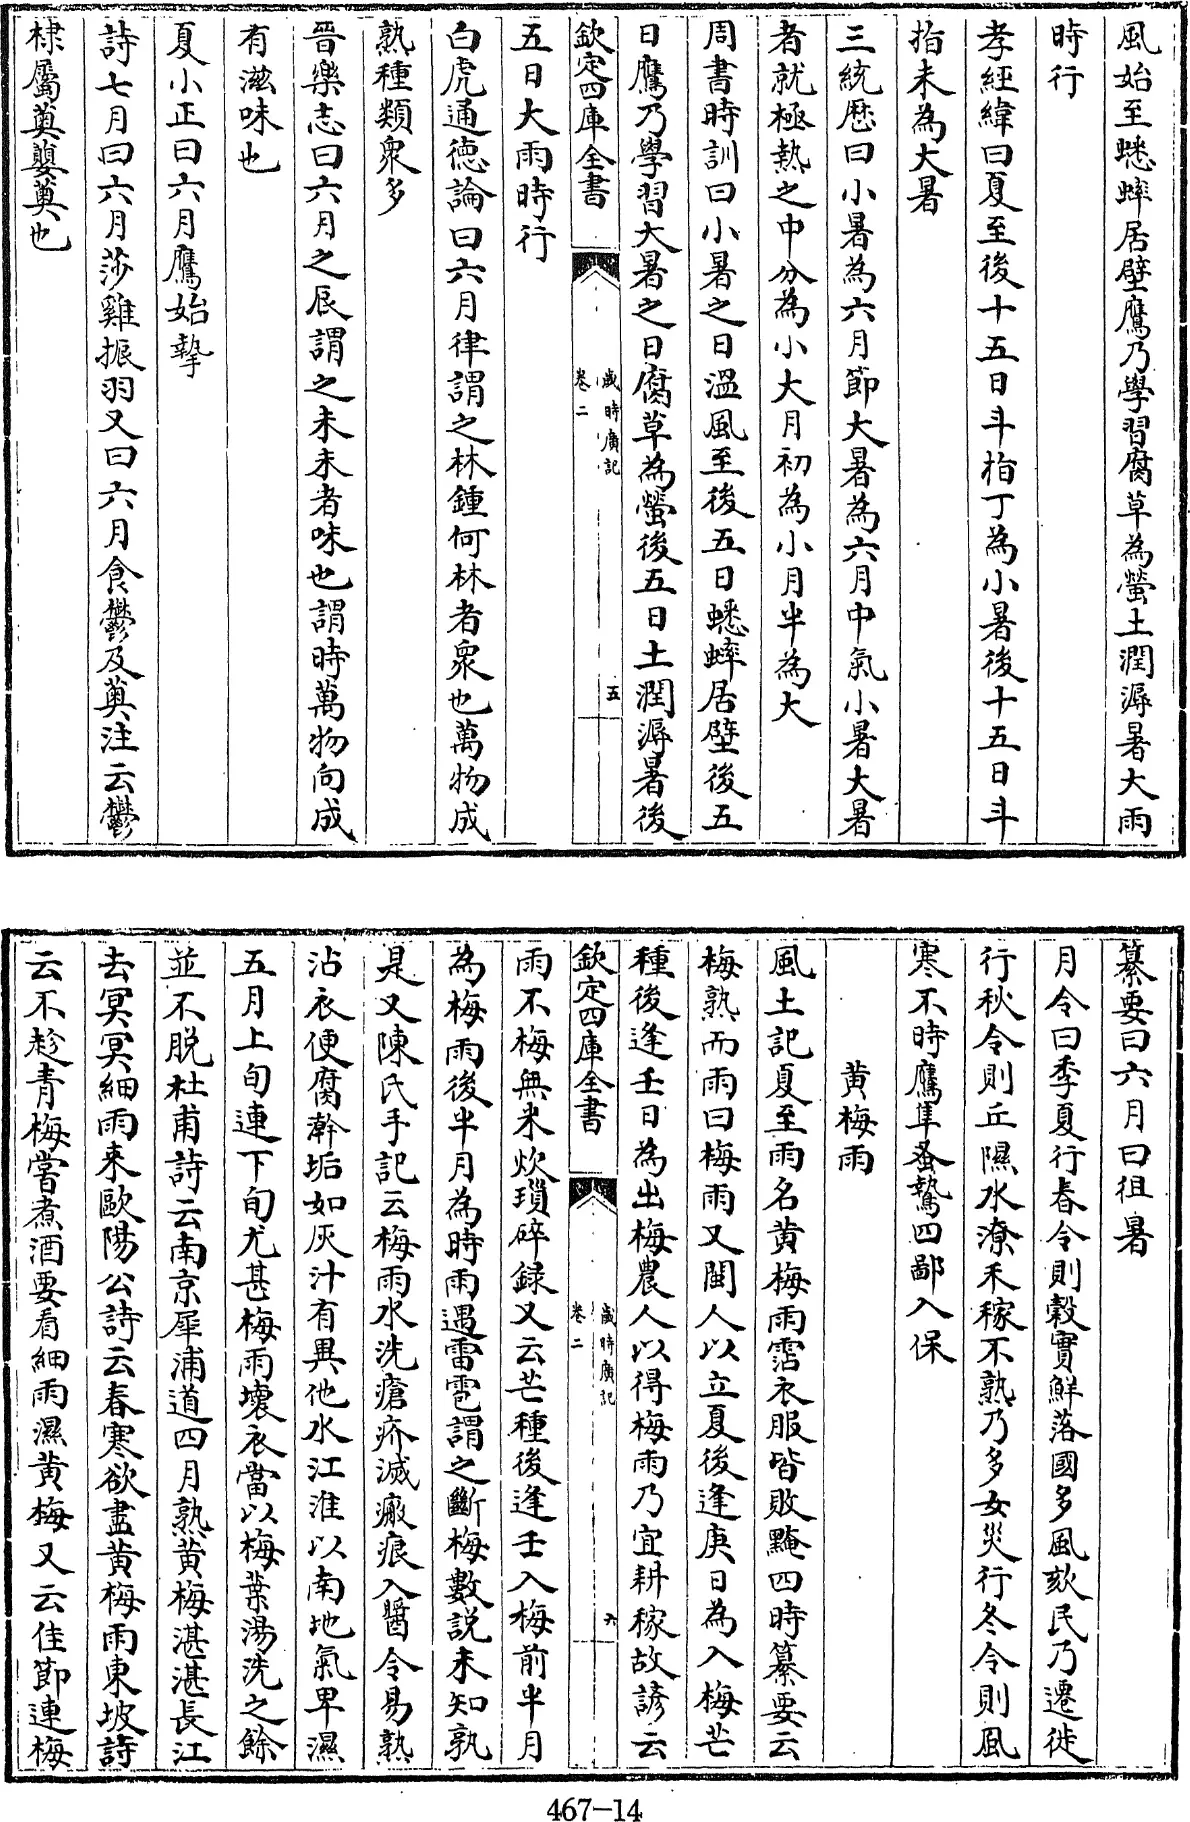 風始至蟋蟀居壁鷹乃學習腐草為螢土潤溽暑大雨
時行
孝經緯曰夏至後十五日斗指丁為小暑後十五日斗
指未為大暑
三統歷曰小暑為六月節大暑為六月中氣小暑大暑
者就極熱之中分為小大月初為小月半為大
周書時訓曰小暑之日溫風至後五日蟋蟀居壁後五
日鷹乃學習大暑之日腐草為螢後五日土潤溽暑後
欽定四庫全書
歲時廣記
卷二
五
五日大雨時行
白虎通德論曰六月律謂之林鍾何林者衆也萬物成
熟種類衆多
晉樂志曰六月之辰謂之未未者味也謂時萬物向成
有滋味也
夏小正曰六月鷹始摯
詩七月曰六月莎雞振羽又曰六月食鬱及薁注云鬱
棣屬薁蘡薁也
纂要曰六月曰徂暑
月令曰季夏行春令則穀實鮮落國多風欬民乃遷徙
行秋令則丘隰水潦禾稼不熟乃多女災行冬令則風
寒不時鷹隼蚤鷙四鄙入保
黄梅雨
風土記夏至雨名黄梅雨霑衣服皆敗黦四時纂要云
梅熟而雨曰梅雨又閩人以立夏後逢庚日為入梅芒
種後逢壬日為出梅農人以得梅雨乃宜耕稼故諺云
欽定四庫全書
歲時廣記
卷二
六
雨不梅無米炊瑣碎録又云芒種後逢壬入梅前半月
為梅雨後半月為時雨遇雷雹謂之斷梅數説未知孰
是又陳氏手記云梅雨水洗瘡疥滅瘢痕入醬令易熟
沾衣便腐澣垢如灰汁有異他水江淮以南地氣卑濕
五月上旬連下旬尤甚梅雨壞衣當以梅葉湯洗之餘
並不脱杜甫詩云南京犀浦道四月熟黄梅湛湛長江
去冥冥細雨来歐陽公詩云春寒欲盡黄梅雨東坡詩
云不趁青梅嘗煮酒要看細雨濕黄梅又云佳節連梅
467-14